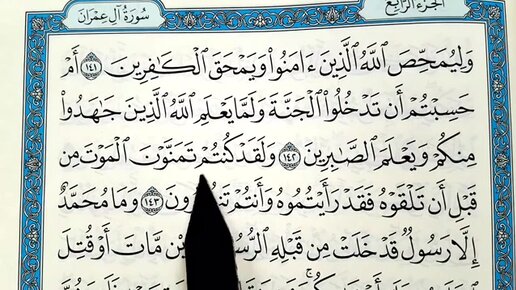 الجزء الرابع
سورة آل عمران
وَلِيُمَحِّصَ ٱللَّهُ ٱلَّذِينَ ءَامَنُوا۟ وَيَمْحَقَ ٱلْكَـٰفِرِينَ ١٤١ أَمْ
حَسِبْتُمْ أَن تَدْخُلُوا۟ ٱلْجَنَّةَ وَلَمَّا يَعْلَمِ ٱللَّهُ ٱلَّذِينَ جَـٰهَدُوا۟
مِنكُمْ وَيَعْلَمَ ٱلصَّـٰبِرِينَ ١٤٢ وَلَقَدْ كُنتُمْ تَمَنَّوْنَ ٱلْمَوْتَ مِن
قَبْلِ أَن تَلْقَوْهُ فَقَدْ رَأَيْتُمُوهُ وَأَنتُمْ ١٤٣ وَمَا مُحَمَّدٌ
إِلَّا رَسُولٌ قَدْ خَلَتْ مِن قَبْلِهِ مَّاتَ أَوْ قُتِلَ